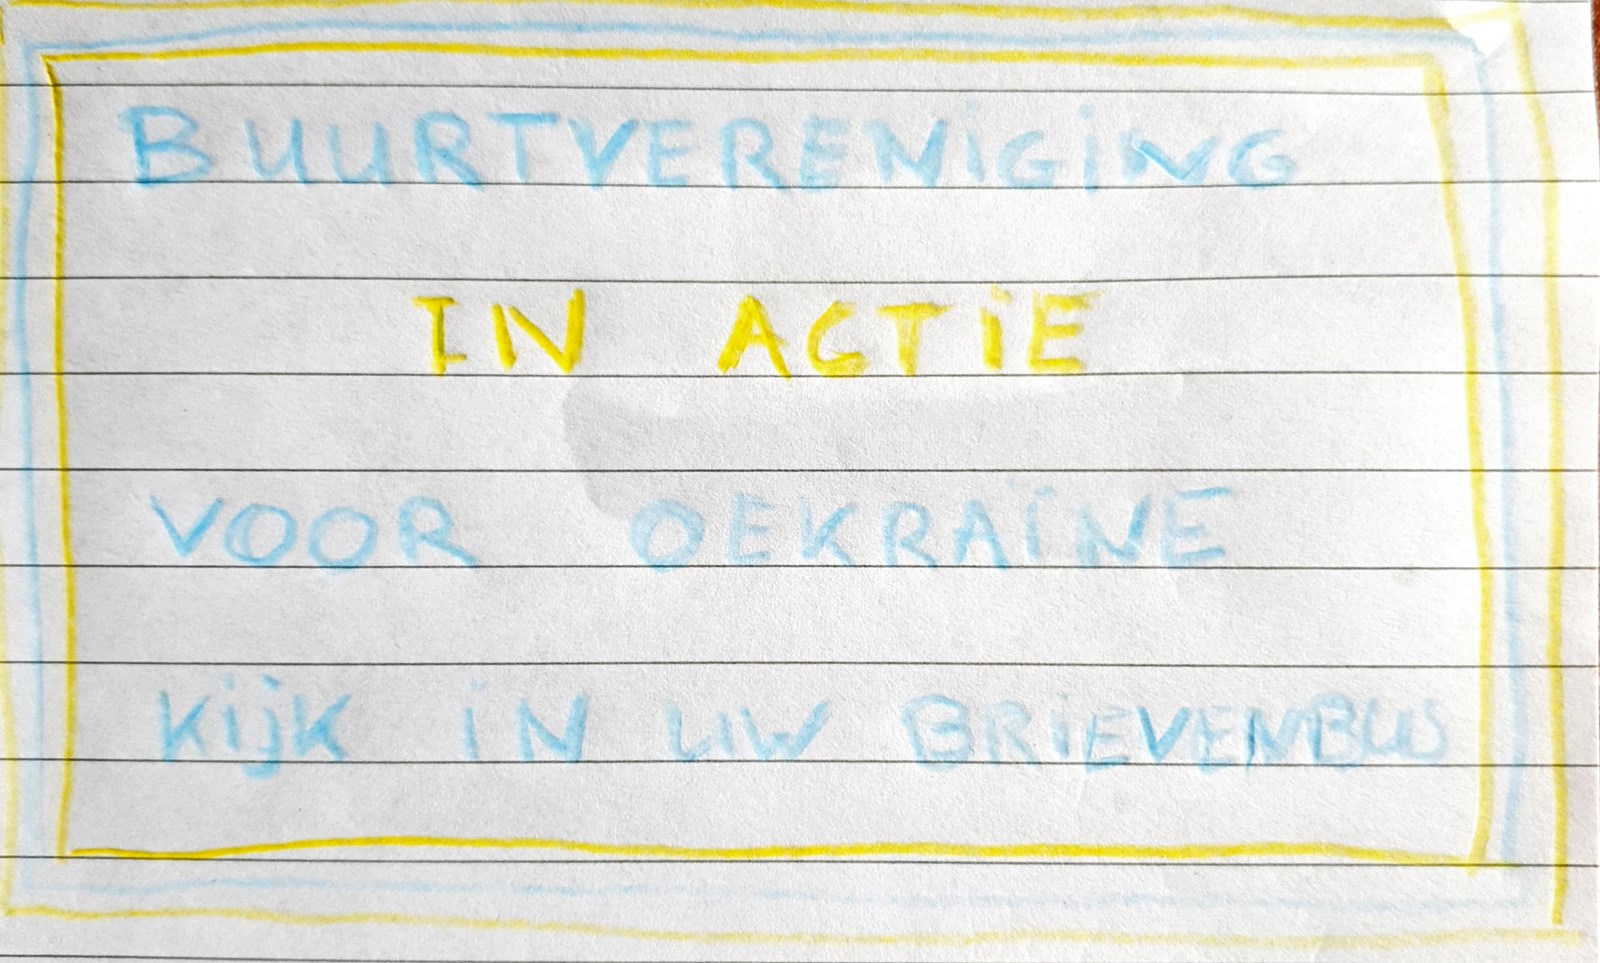 BUURTVERENiGiNG
IN ACTiE
VOOR OEKRAÏNE
KijK iN UW BRiEVENBUS